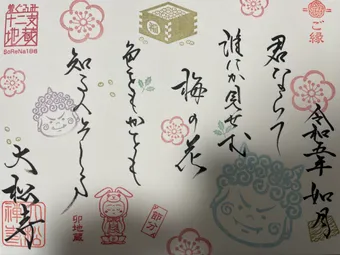 ご縁
令和五年 如月
君ならて
誰にか見せむ
梅の花
色をもかをも
知る人そしる
大松寺
福
節分
卯地蔵
十二支
地蔵
SoReNa188